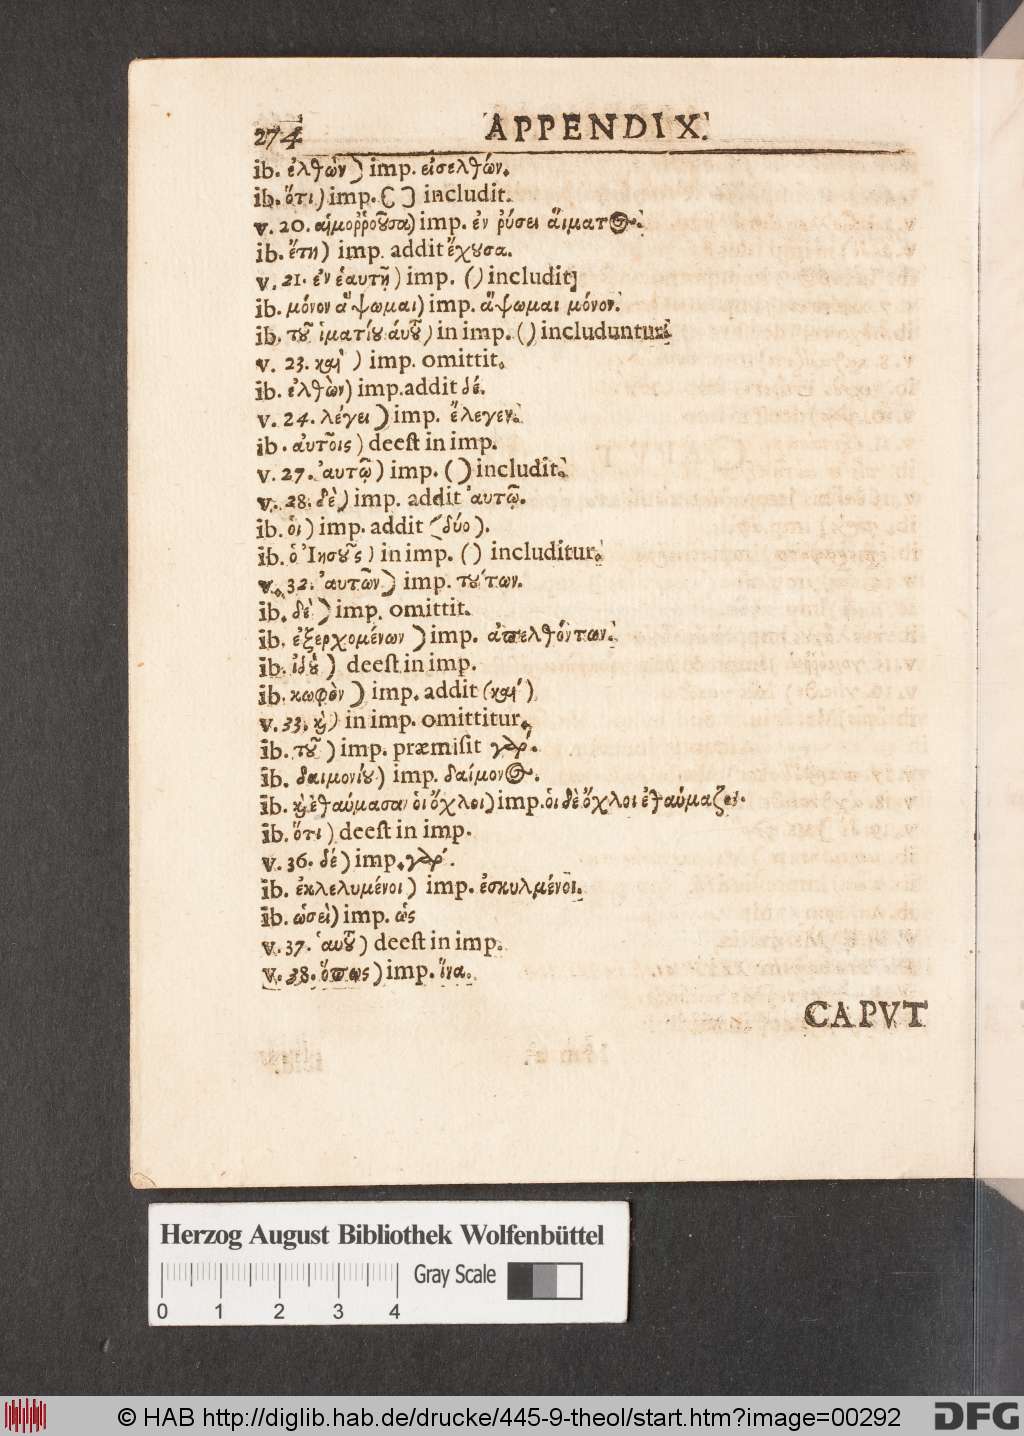 274 APPENDIX.
ib. ἐλθὼν) imp. εἰσελθών.
ib. ὅτι) imp. [ ] includit.
v. 20. αἱμοῤῥοῦσα) imp. ἐν ῥύσει αἵματος.
ib. ἔτη) imp. addit ἔχουσα.
v. 21. ἐν ἑαυτῇ) imp. () includit
ib. μόνον ἅψωμαι) imp. ἅψωμαι μόνον.
ib. τοῦ ἱματίου αὑτοῦ) in imp. () includuntur.
v. 23. καὶ ) imp. omittit.
ib. ἐλθὼν) imp. addit δέ.
v. 24. λέγει) imp. ἔλεγεν.
ib. αὐτοῖς) deest in imp.
v. 27. αὐτῷ) imp. () includit.
v. 28. δὲ) imp. addit αὐτῷ.
ib. οἱ) imp. addit (δύο).
ib. ὁ Ἰησοῦς) in imp. () includitur.
v. 32. αὐτῶν) imp. τούτων.
ib. δὲ) imp. omittit.
ib. ἐξερχομένων) imp. ἀπελθόντων.
ib. ἰδοὺ) deest in imp.
ib. κωφὸν) imp. addit (καὶ)
v. 33. καὶ) in imp. omittitur.
ib. τοῦ) imp. præmisit γάρ.
ib. δαιμονίου) imp. δαίμονος.
ib. καὶ ἐθαύμασαν οἱ ὄχλοι) imp. οἱ δὲ ὄχλοι ἐθαύμαζον.
ib. ὅτι) deest in imp.
v. 36. δέ) imp. γάρ.
ib. ἐκλελυμένοι) imp. ἐσκυλμένοι.
ib. ὡσεὶ) imp. ὡς
v. 37. αὑτοῦ) deest in imp.
v. 38. ὅπως) imp. ἵνα.
CAPVT
Herzog August Bibliothek Wolfenbüttel
Gray Scale
0 1 2 3 4
© HAB http://diglib.hab.de/drucke/445-9-theol/start.htm?image=00292 DFG